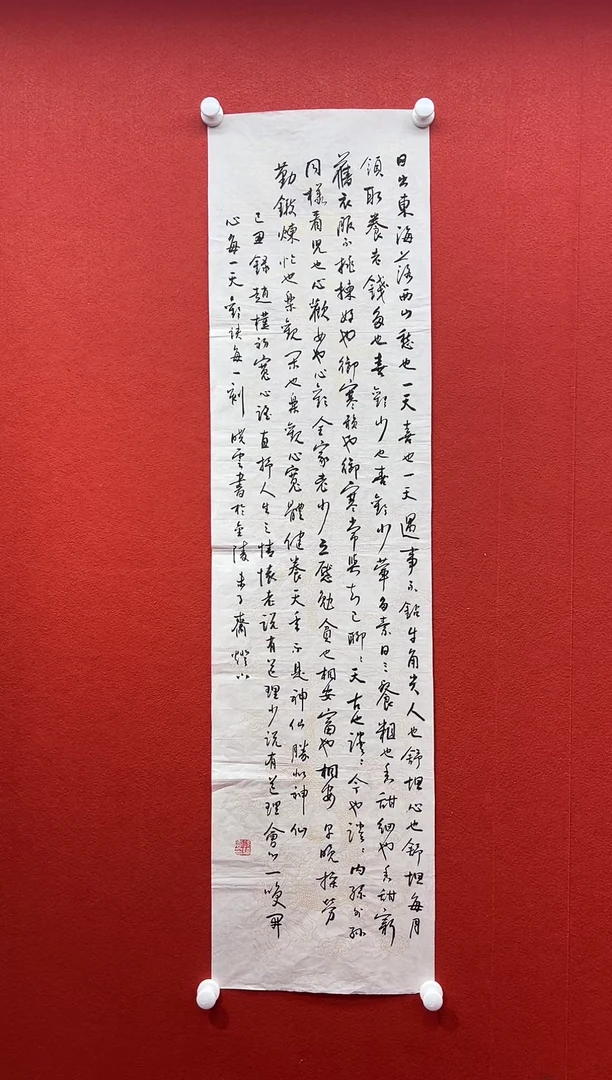 日出東海落西山愁也一天喜也一天遇事不鉆牛角尖人也舒坦心也舒坦每月
領取養老錢多也喜歡少也喜歡少葷多素日三餐粗也香甜細也香甜新
舊衣服不挑揀好也御寒賴也御寒常與知己聊々天古也談々今也談々內孫外孫
同樣看兒也心歡女也心歡全家老少互感勉貧也相安富也相安早晚操勞
勤鍛煉忙也樂觀閑也樂觀心寬體健養天年不是神仙勝似神仙
己丑錄趙樸初寬心謠直抒人生之情懷老說有道理少說有道理會心一笑開
心每一天歡談每一刻 曉雲書於金陵未了齋燈下